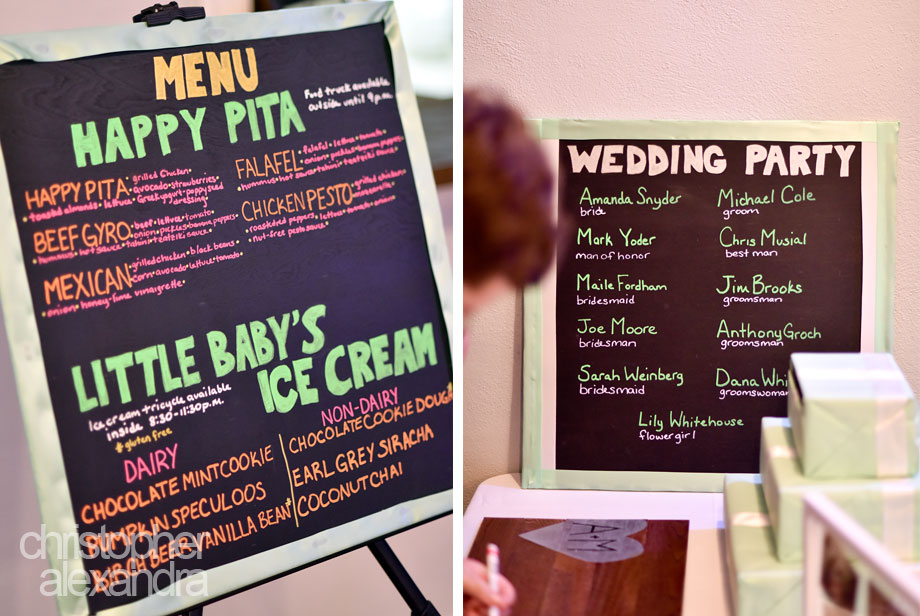 MENU
HAPPY PITA
Food truck available
outside until 9p.m.
HAPPY PITA: grilled chicken
avocado • strawberries
toasted almonds • lettuce • Greek yogurt • poppyseed
dressing
BEEF GYRO: beef • lettuce • tomato
onion • pickles • banana peppers
hummus • hot sauce • tahini • tzatziki sauce
MEXICAN: grilled chicken • black beans
corn • avocado • lettuce • tomato
onion • honey-lime vinaigrette
FALAFEL: falafel • lettuce • tomato
onion • pickles • banana peppers
hommus • hot sauce • tahini • tzatziki sauce
CHICKEN PESTO: grilled chicken
roasted red peppers • lettuce • tomato • onion
nut-free pesto sauce
LITTLE BABY'S
ICE CREAM
Ice cream tricycle available
inside 8:30-11:30p.m.
* gluten free
DAIRY
CHOCOLATE MINT COOKIE
PUMPKIN SPECULOOS
BIRCH BEER VANILLA BEAN*
NON-DAIRY
CHOCOLATE COOKIE DOUGH
EARL GREY SIRACHA
COCONUT CHAI
christopher
alexandra
WEDDING PARTY
Amanda Snyder
bride
Michael Cole
groom
Mark Yoder
man of honor
Chris Musial
best man
Maile Fordham
bridesmaid
Jim Brooks
groomsman
Joe Moore
bridesman
Anthony Groch
groomsman
Sarah Weinberg
bridesmaid
Dana
groomswoman
Lily Whitehouse
flower girl
A+M